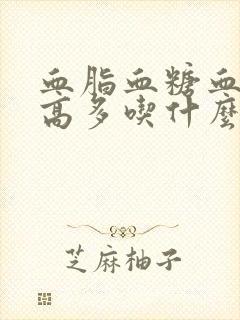 血脂血糖血
高多喫什麼
芝麻柚子